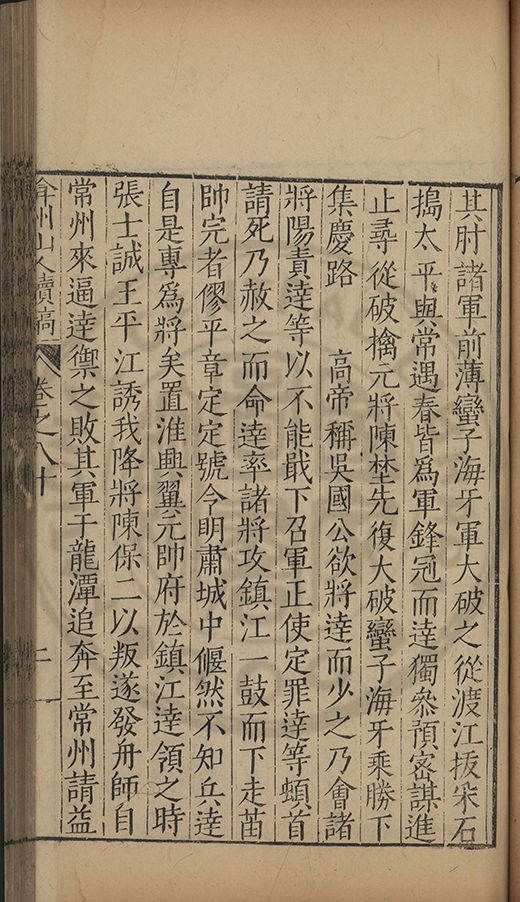 其肘諸軍前薄蠻子海牙軍大破之從渡江拔采石
搗太平與常遇春皆爲軍鋒冠而達獨叅預密謀進
止尋從破擒元將陳埜先復大破蠻子海牙乘勝下
集慶路　高帝稱吳國公欲將達而少之乃會諸
將陽責達等以不能戢下召軍正使定罪達等頓首
請死乃赦之而命達率諸將攻鎮江一鼓而下走苗
帥完者僇平章定定號令明肅城中偃然不知兵達
自是專爲將矣置淮興翼元帥府於鎮江達領之時
張士誠王平江誘我降將陳保二以叛遂發舟師自
常州來逼達禦之敗其軍于龍潭追奔至常州請益
弇州山人續稿 卷之八十 二